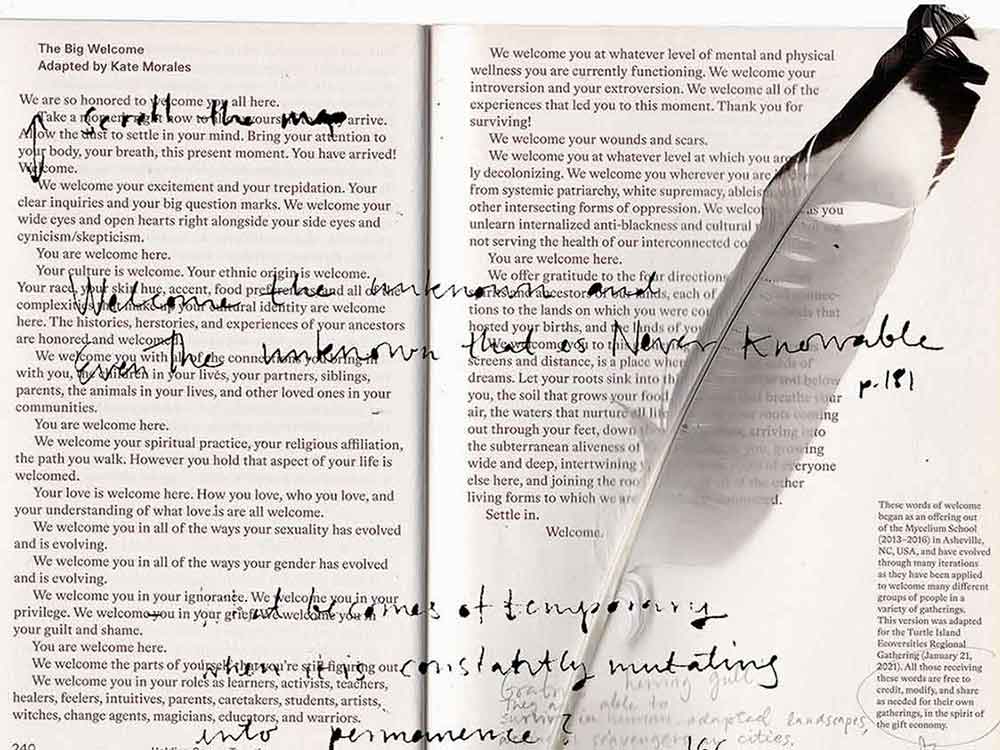 The Big Welcome
Adapted by Kate Morales
We are so honored to welcome you all here.
Take a moment right now to yours arrive.
Allow the dust to settle in your mind. Bring your attention to
your body, your breath, this present moment. You have arrived!
Welcome.
We welcome your excitement and your trepidation. Your
clear inquiries and your big question marks. We welcome your
wide eyes and open hearts right alongside your side eyes and
cynicism/skepticism.
You are welcome here.
Your culture is welcome. Your ethnic origin is welcome.
Your race, your skin hue, accent, food preferences and all of the
complexities that make up your cultural identity are welcome
here. The histories, herstories, and experiences of your ancestors
are honored and welcomed.
We welcome you with all of the connections you bring in
with you, the children in your lives, your partners, siblings,
parents, the animals in your lives, and other loved ones in your
communities.
You are welcome here.
We welcome your spiritual practice, your religious affiliation,
the path you walk. However you hold that aspect of your life is
welcomed.
Your love is welcome here. How you love, who you love, and
your understanding of what love is are all welcome.
We welcome you in all of the ways your sexuality has evolved
and is evolving.
We welcome you in all of the ways your gender has evolved
and is evolving.
We welcome you in your ignorance. We welcome you in your
privilege. We welcome you in your grief. We welcome you in
your guilt and shame.
You are welcome here.
We welcome the parts of yourself that you're still figuring out.
We welcome you in your roles as learners, activists, teachers,
healers, feelers, intuitives, parents, caretakers, students, artists,
witches, change agents, magicians, educators, and warriors.
240
We welcome you at whatever level of mental and physical
wellness you are currently functioning. We welcome your
introversion and your extroversion. We welcome all of the
experiences that led you to this moment. Thank you for
surviving!
We welcome your wounds and scars.
We welcome you at whatever level at which you are
ly decolonizing. We welcome you wherever you are
from systemic patriarchy, white supremacy, ableism
other intersecting forms of oppression. We welcome as you
unlearn internalized anti-blackness and cultural
not serving the health of our interconnected
You are welcome here.
We offer gratitude to the four directions
and ancestors of our lands, each of connec-
tions to the lands on which you were that
hosted your births, and lands of
We welcome you to this
screens and distance, is a place where of
dreams. Let your roots sink into and below
you, the soil that grows your food that breathe your
air, the waters that nurture all life your roots coming
out through your feet, down arriving into
the subterranean aliveness of you, growing
wide and deep, intertwining of everyone
else here, and joining the of the other
living forms to which we are connected.
Settle in.
Welcome.
These words of welcome
began as an offering out
of the Mycelium School
(2013–2016) in Asheville,
NC, USA, and have evolved
through many iterations
as they have been applied
to welcome many different
groups of people in a
variety of gatherings.
This version was adapted
for the Turtle Island
Ecoversities Regional
Gathering (January 21,
2021). All those receiving
these words are free to
credit, modify, and share
as needed for their own
gatherings, in the spirit of
the gift economy.
scroll the map
Welcome the unknown and
Even The unknown that is Never Knowable
p.181
becomes of temporary
when it is constantly mutating
into permanence?
herring gull
They are able to
survive in human adapted landscapes,
scavengers cities.